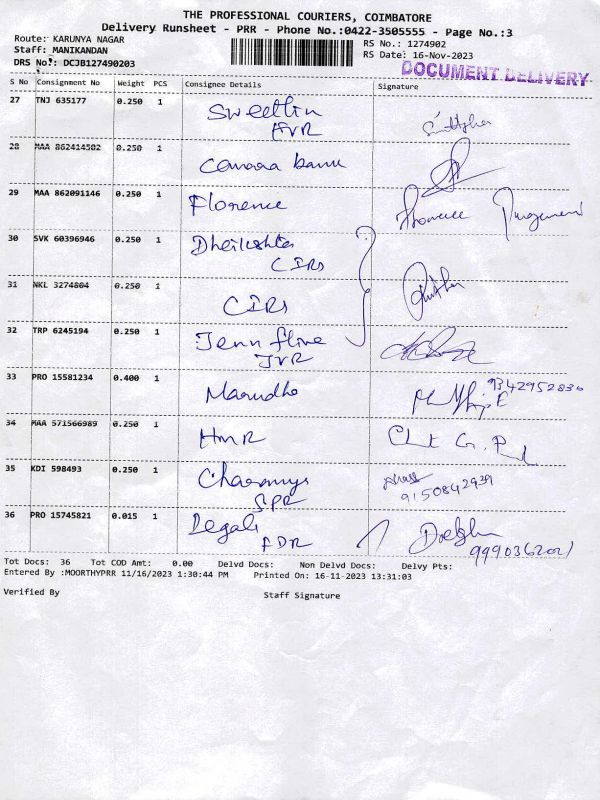 THE PROFESSIONAL COURIERS, COIMBATORE
Delivery Runsheet - PRR - Phone No.:0422-3505555 - Page No.:3
Route: KARUNYA NAGAR
Staff: MANIKANDAN
DRS No.: DCJB127490203
RS No.: 1274902
RS Date: 16-Nov-2023
DOCUMENT DELIVERY
S No Consignment No Weight PCS Consignee Details Signature
27 TNJ 635177 0.250 1 Sweetlin
HVR
28 MAA 862414502 0.250 1
29 MAA 862091146 0.250 1 Florence Florence
30 SVK 60396946 0.250 1 Dheikshta
CIRS
31 NKL 3274804 0.250 1 CIRS
32 TRP 6245194 0.250 1 Jenn fline
JVR
33 PRO 15581234 0.400 1 Maaudho 9342952836
34 MAA 571566989 0.250 1 HMR
35 KDI 598493 0.250 1
SPR 9150842939
36 PRO 15745821 0.015 1 Degali
FDR 9990362021
Tot Docs: 36 Tot COD Amt: 0.00 Delvd Docs: Non Delvd Docs: Delvy Pts:
Entered By :MOORTHYPRR 11/16/2023 1:30:44 PM Printed On: 16-11-2023 13:31:03
Verified By Staff Signature